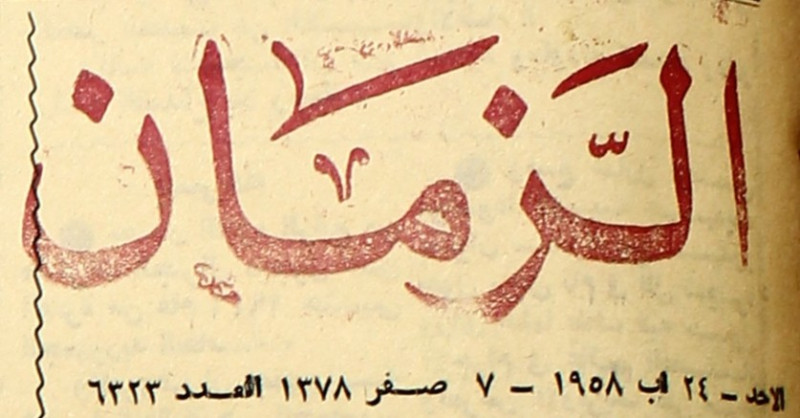 الزّمان
الاحد - ٢٤ اب ١٩٥٨ - ٧ صفر ١٣٧٨ العدد ٦٣٢٣